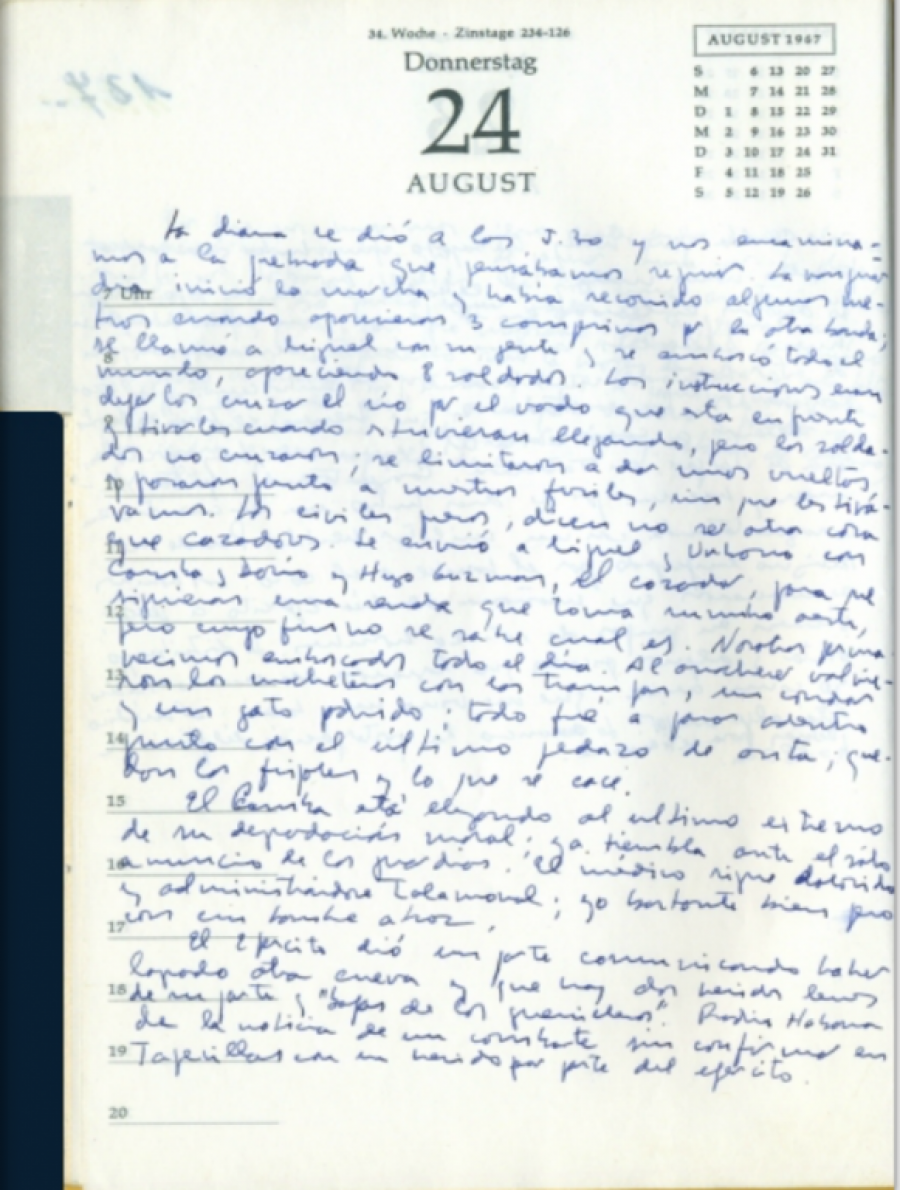 34. Woche - Zinstage 234-126
Donnerstag
24
AUGUST
AUGUST 1967
S 6 13 20 27
M 7 14 21 28
D 1 8 15 22 29
M 2 9 16 23 30
D 3 10 17 24 31
F 4 11 18 25
S 5 12 19 26
La diana se dió a las 5.30 y nos encamina-
mos a la quebrada que pensábamos seguir. La vanguar
7 Uhr
dia inició la marcha y había recorrido algunos me-
tros cuando aparecieron 3 campesinos por la otra banda;
8
se llamó a Miguel con su gente y se emboscó todo el
mundo, apareciendo 8 soldados. Las instrucciones eran
dejarlos cruzar el río por el vado que está enfrente
9
y tirarles cuando estuvieran llegando, pero los solda-
dos no cruzaron; se limitaron a dar unas vueltas
10
y pasaron junto a nuestros fusiles, sin que les tirá-
vamos. Los civiles presos, dicen no ser otra cosa
11
que cazadores. Se envió a Miguel y Urbano con
Camba, Darío y Hugo Guzman, el cazador, para que
12
siguieran una senda que toma rumbo oeste,
pero cuyo fin no se sabe cual es. Nosotros perma-
necimos emboscados todo el día. Al anochecer volvie-
13
ron los macheteros con las trampas, un condor
y un gato podrido; todo fue a parar adentro
14
junto con el ultimo pedazo de anta; que-
dan los frijoles y lo que se cace.
15
El Camba está llegando al ultimo extremo
de su degradación moral; ya tiembla ante el sólo
16
anuncio de los guardias. El médico sigue dolorido
y administrándose Talamonal; yo bastante bien pero
17
con un hambre atroz.
El Ejército dió un parte comunicando haber
18
tapado otra cueva y que hay dos heridos leves
de su parte y "bajas de los guerrilleros". Radio Habana
da la noticia de un combate sin confirmar en
19
Taperillas con un herido por parte del ejército.
20